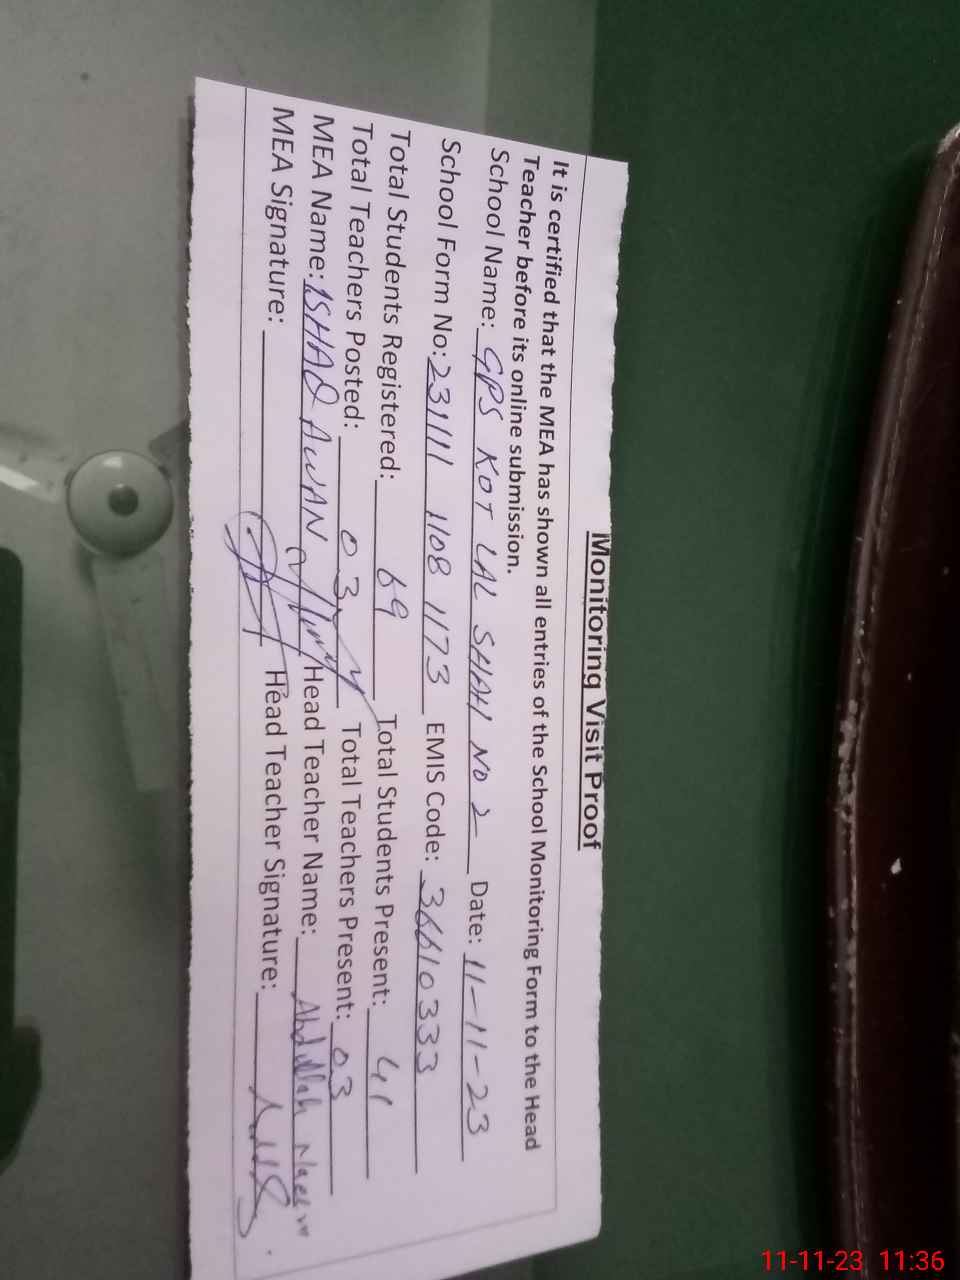 Monitoring Visit Proof
It is certified that the MEA has shown all entries of the School Monitoring Form to the Head
Teacher before its online submission.
School Name: GPS KOT LAL SHAH NO 2 Date: 11-11-23
School Form No: 231111 1108 1173 EMIS Code: 36610333
Total Students Registered: 69 Total Students Present: 41
Total Teachers Posted: 03 Total Teachers Present: 03
MEA Name: ISHAQ AWAN Head Teacher Name: Abdullah Naeem
MEA Signature: Head Teacher Signature:
11-11-23 11:36